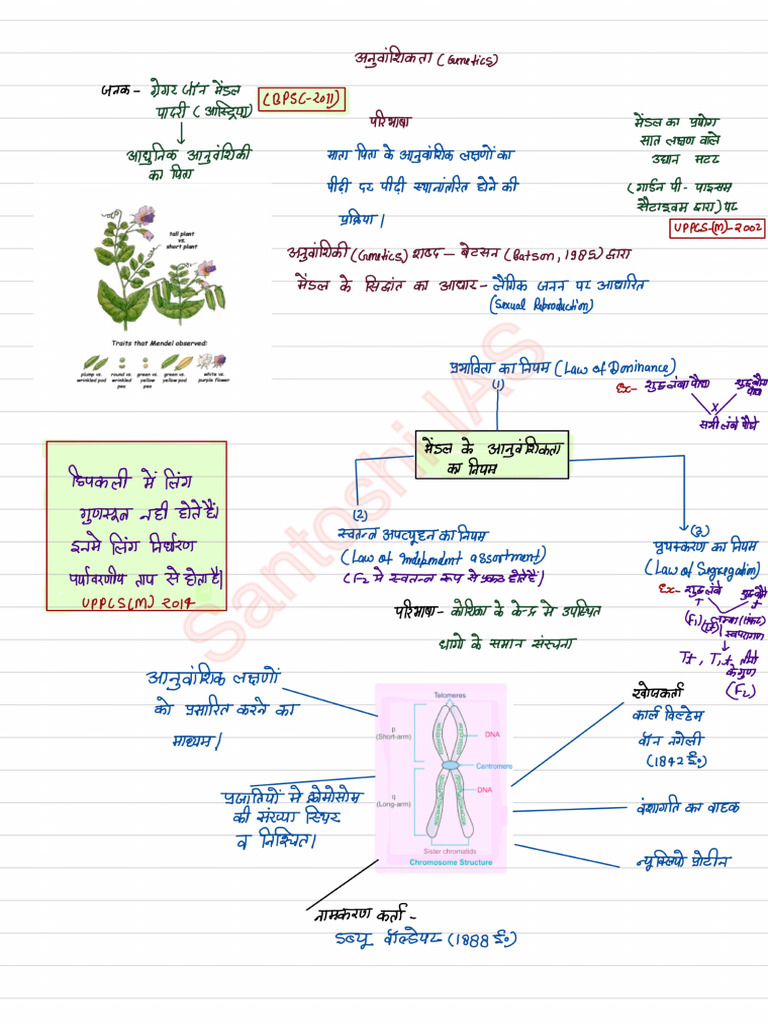 अनुवांशिकता (Genetics)
जनक - ग्रेगर जॉन मेंडल
पादरी (आस्ट्रिया)
(BPSC-2011)
आधुनिक आनुवंशिकी
का पिता
परिभाषा
माता पिता के आनुवांशिक लक्षणों का
पीढ़ी दर पीढ़ी स्थानांतरित होने की
प्रक्रिया।
मेंडल का प्रयोग
सात लक्षण वाले
उद्यान मटर
(गार्डन पी - पाइसम
सैटाइवम द्वारा) पर
UPPCS-(M)-2002
अनुवांशिकी (Genetics) शब्द – बेटसन (Batson, 1985) द्वारा
मेंडल के सिद्धांत का आधार - लैंगिक जनन पर आधारित
(Sexual Reproduction)
tall plant
vs.
short plant
Traits that Mendel observed:
plump vs. wrinkled pod
round vs. wrinkled pea
green vs. yellow pea
green vs. yellow pod
white vs. purple flower
प्रभाविता का नियम (Law of Dominance)
(1)
Ex- शुद्ध लंबा पौधा
शुद्ध बौना पौधा
X
सभी लंबे पौधे
मेंडल के आनुवंशिकता
का नियम
छिपकली में लिंग
गुणसूत्र नहीं होते हैं।
इनमे लिंग निर्धारण
पर्यावरणीय ताप से होता है।
UPPCS(M) 2014
(2)
स्वतन्त्र अपव्यूहन का नियम
(Law of Independent assortment)
(F2 मे स्वतन्त्र रूप से प्रकट होते हैं)
(3)
पृथक्करण का नियम
(Law of Segregation)
Ex- शुद्ध लंबे
T
t
(F1)
स्वपरागण
के गुण
(F2)
परिभाषा - कोशिका के केन्द्र मे उपस्थित
धागो के समान संरचना
आनुवांशिक लक्षणों
को प्रसारित करने का
माध्यम।
प्रजातियों मे क्रोमोसोम
की संख्या स्थिर
व निश्चित।
नामकरण कर्ता -
डब्ल्यू वॉल्डेयर (1888 ई०)
Telomeres
p
(Short-arm)
DNA
Centromere
q
(Long-arm)
DNA
Sister chromatids
Chromosome Structure
खोजकर्ता
कार्ल विल्हेम
वॉन नगेली
(1842 ई०)
वंशागति का वाहक
न्यूक्लियो प्रोटीन
Santoshi IAS